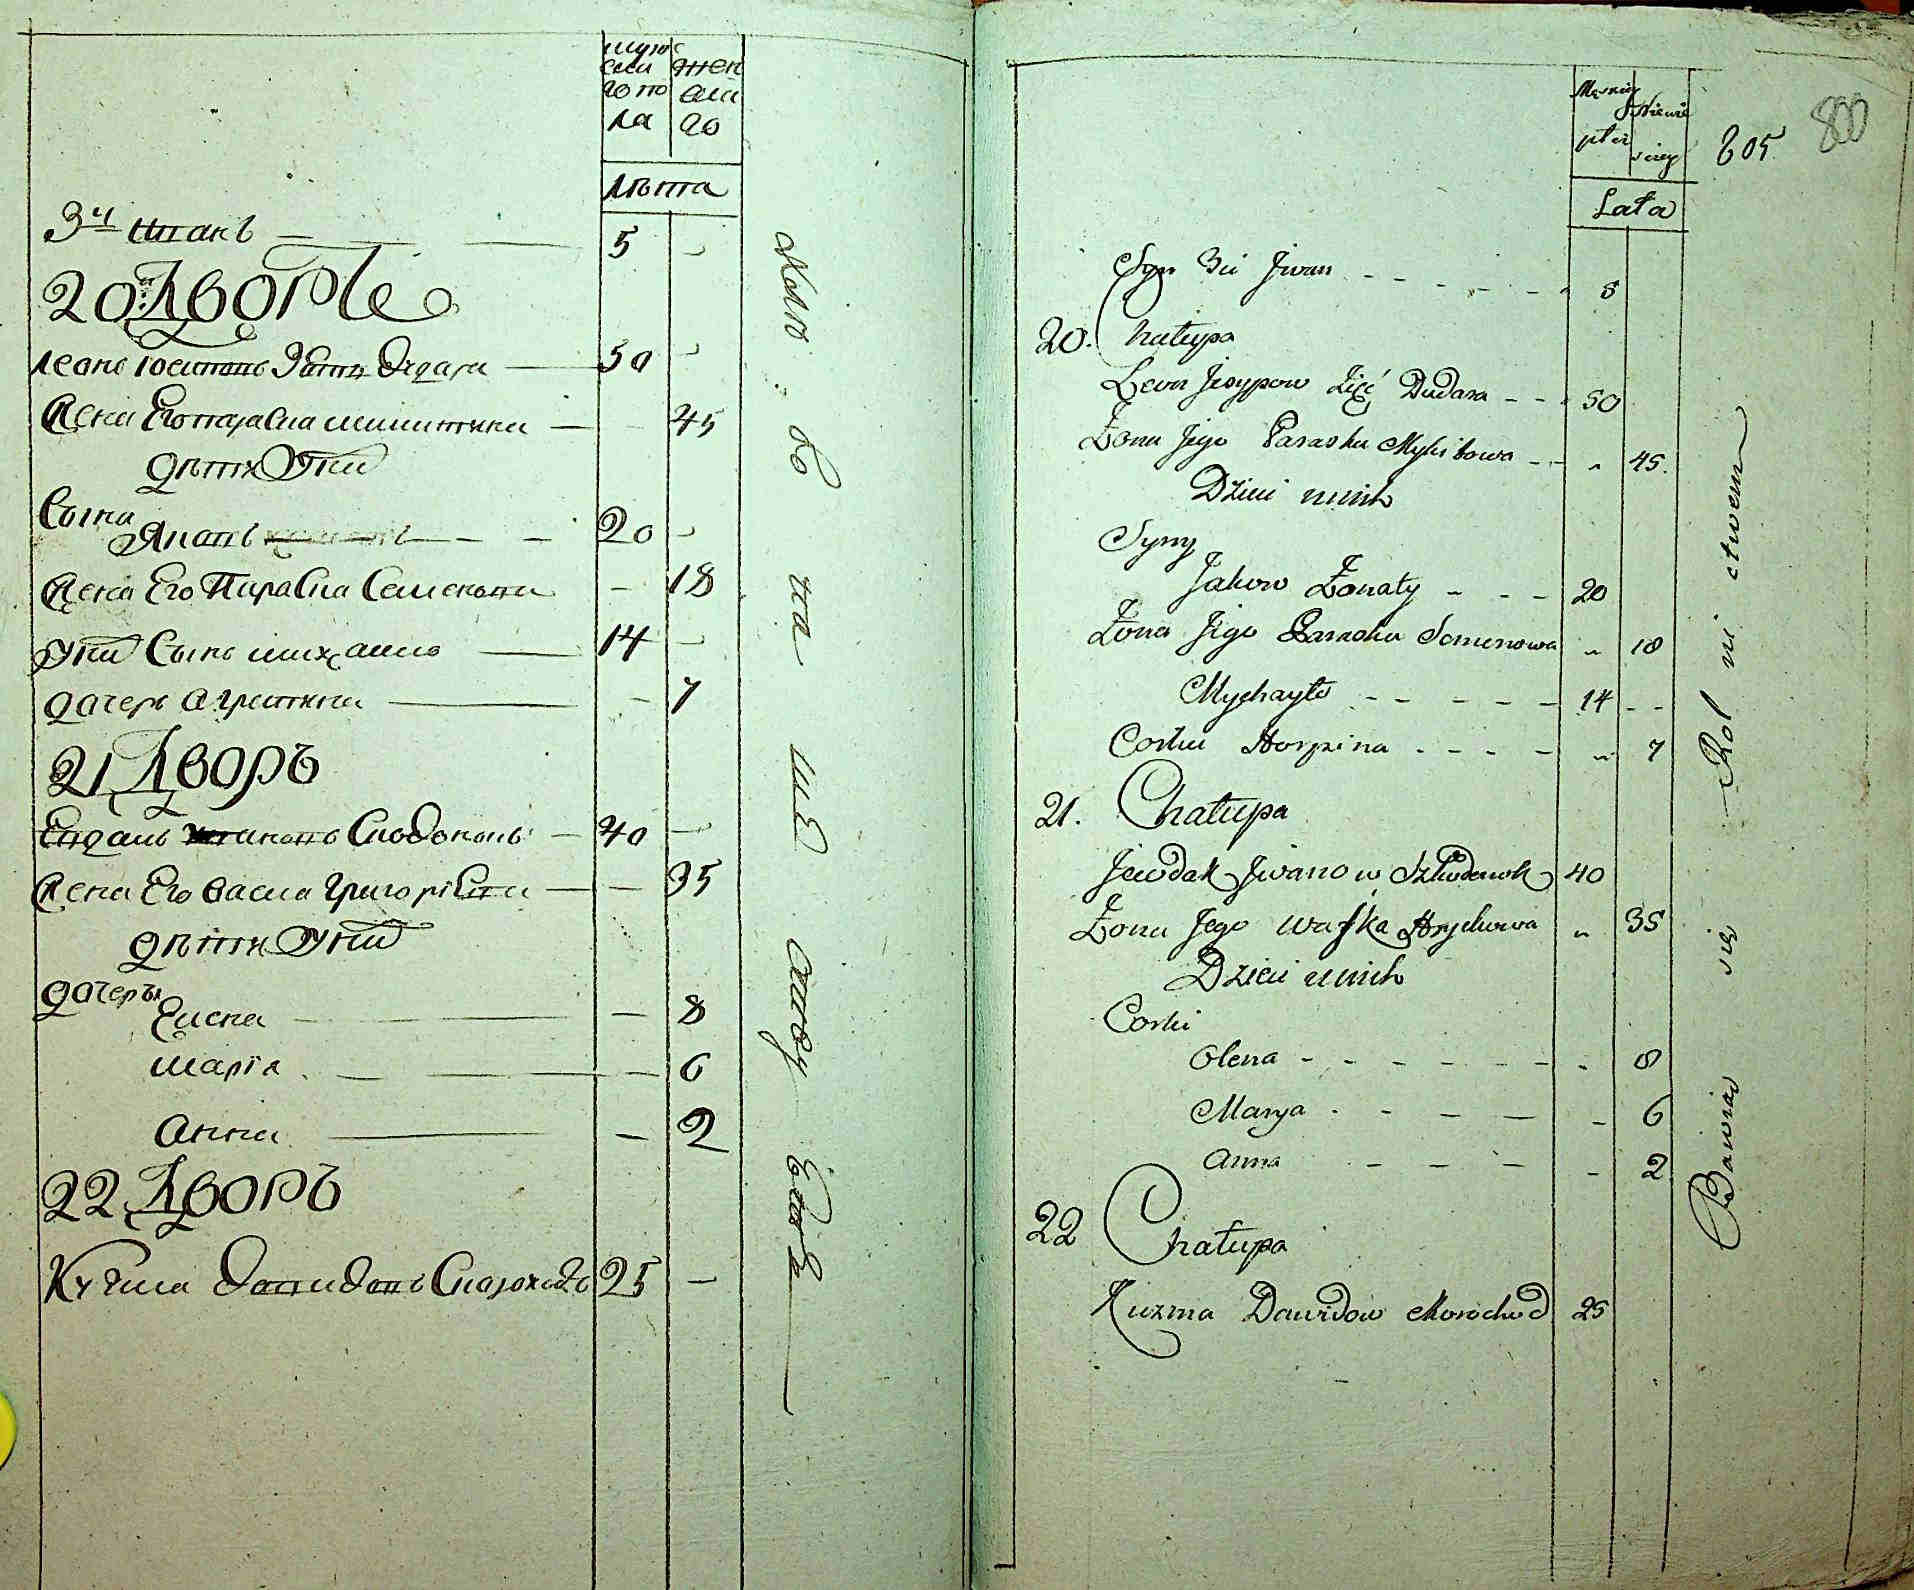 мужескаго пола
женскаго
лѣта
3й Иванъ — 5 -
20й Дворъ
Леонъ Іосиповъ Зять Дударя — 50 -
Жена Его Параска Микитина — - 45
дѣти Уних
Сыны
Яковъ — 20 -
Жена Его Параска Семенова - 18
Уних Сынъ Михайло — 14 -
дочерь Агрепина — - 7
21 Дворъ
Евдакъ Ивановъ — 40 -
Жена Его Васка Григоріева — - 35
дѣти Уних
дочеры
Елена — - 8
Марія — - 6
Анна — - 2
22 Дворъ
Кузма Давидовъ 25 -
605
800
Męzkiey płci
Lata
Syn 3ci Jwan - - - 5
20. Chałupa
Lewn Jesypow Zięć Dudara - - - 50
Żona Jego Paraska Mykitowa - - „ 45.
Dzieci u nich
Syny
Jakow Żonaty - - - 20
Żona Jego Paraska Semenowa „ 18
Mychayło - - - - - 14 - -
Corka Horpina - - - - „ 7
21. Chałupa
Jewdak Jwanow 40
Żona Jego Waska Hryhorowa „ 35
Dzieci u nich
Corki
Olena - - - - - - - 8
Marya - - - - - 6
Anna - - - - 2
22 Chałupa
Kuzma Dawidow Morochod 25
Bawią się Rolnictwem